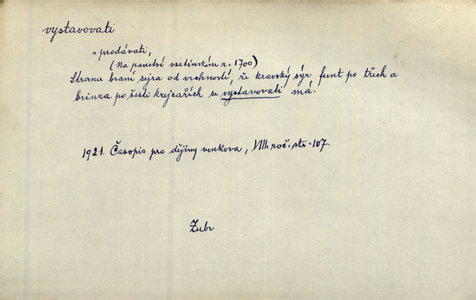 vystavovati
= prodávati,
(Na panství vsetínském r. 1700)
Strany braní sýra od vrchností, že kravský sýr, funt po třech a
brinza po šesti krejcařích se vystavovati má.
1921. Časopis pro dějiny venkova, VIII. roč. str. 107.
Zubr